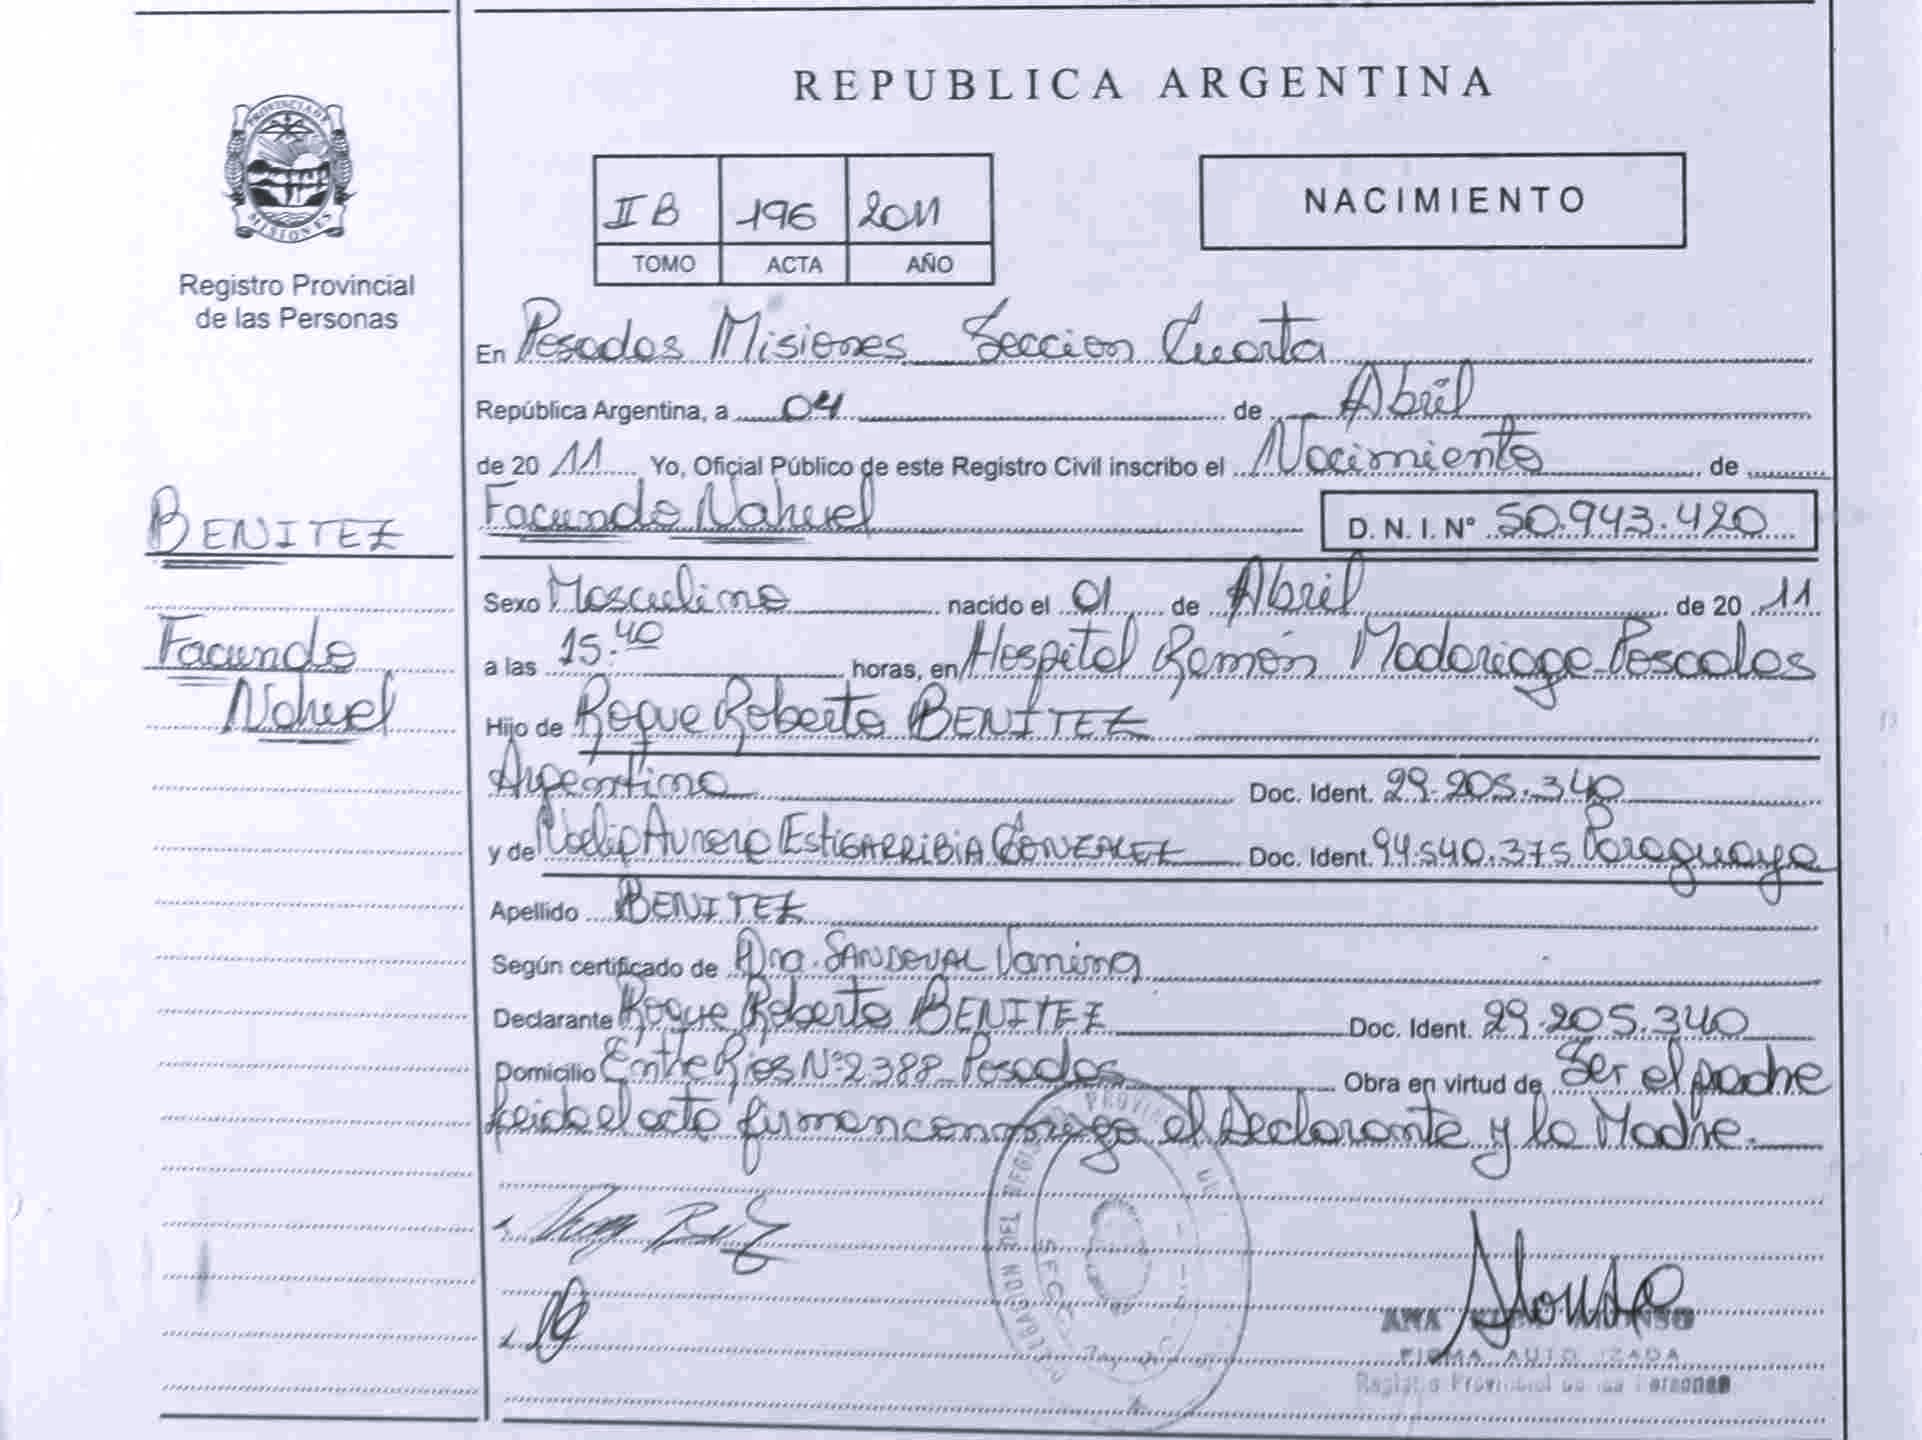 REPUBLICA ARGENTINA
PROVINCIA DE MISIONES
Registro Provincial
de las Personas
II B 196 2011
TOMO ACTA AÑO
NACIMIENTO
En Posadas Misiones Seccion Cuarta
República Argentina, a 04 de Abril
de 20 11 Yo, Oficial Público de este Registro Civil inscribo el Nacimiento de
Facundo Nahuel D. N. I. Nº 50.943.420
BENITEZ
Facundo
Nahuel
Sexo Masculino nacido el 01 de Abril de 20 11
a las 15:40 horas, en Hospital Ramón Madariaga Posadas
Hijo de Roque Roberto BENITEZ
Argentino Doc. Ident. 29.205.340
y de Noelia Aurora ESTIGARRIBIA GONZALEZ Doc. Ident. 94.540.375 Paraguaya
Apellido BENITEZ
Según certificado de Dra. SANDOVAL Vanina
Declarante Roque Roberto BENITEZ Doc. Ident. 29.205.340
Domicilio Entre Rios Nº 2388 Posadas Obra en virtud de Ser el padre
Leida el acta firman conmigo el Declarante y la Madre.
DELEGACION DEL REGISTRO PROVINCIAL
SECC
Alonso
ANA ALONSO
FIRMA AUTORIZADA
Registro Provincial de las Personas